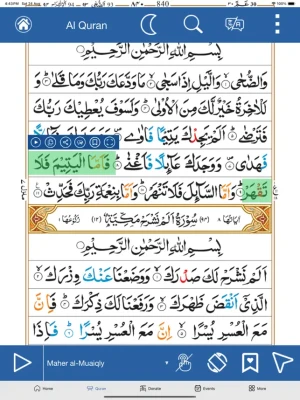 4:43PM Sat 24 Aug
الضحى ٩٣ 840 عم ٣٠
Al Quran
بِسْمِ اللهِ الرَّحْمٰنِ الرَّحِيْمِ
وَالضُّحٰى وَالَّيْلِ اِذَا سَجٰى مَا وَدَّعَكَ رَبُّكَ وَمَا قَلٰى وَ
لَلْاٰخِرَةُ خَيْرٌ لَّكَ مِنَ الْاُوْلٰى وَلَسَوْفَ يُعْطِيْكَ رَبُّكَ
فَتَرْضٰى اَلَمْ يَجِدْكَ يَتِيْمًا فَاٰوٰى
فَهَدٰى وَوَجَدَكَ عَآئِلًا فَاَغْنٰى فَاَمَّا الْيَتِيْمَ فَلَا
تَقْهَرْ وَاَمَّا السَّآئِلَ فَلَا تَنْهَرْ وَاَمَّا بِنِعْمَةِ رَبِّكَ فَحَدِّثْ
اٰيَاتُهَا ٨ (٩٤) سُوْرَةُ اَلَمْ نَشْرَحْ مَكِّيَّةٌ (١٢) رُكُوْعُهَا ١
بِسْمِ اللهِ الرَّحْمٰنِ الرَّحِيْمِ
اَلَمْ نَشْرَحْ لَكَ صَدْرَكَ وَوَضَعْنَا عَنْكَ وِزْرَكَ
الَّذِيْٓ اَنْقَضَ ظَهْرَكَ وَرَفَعْنَا لَكَ ذِكْرَكَ فَاِنَّ
مَعَ الْعُسْرِ يُسْرًا اِنَّ مَعَ الْعُسْرِ يُسْرًا فَاِذَا
Maher al-Muaiqly
Home Quran Donate Events More